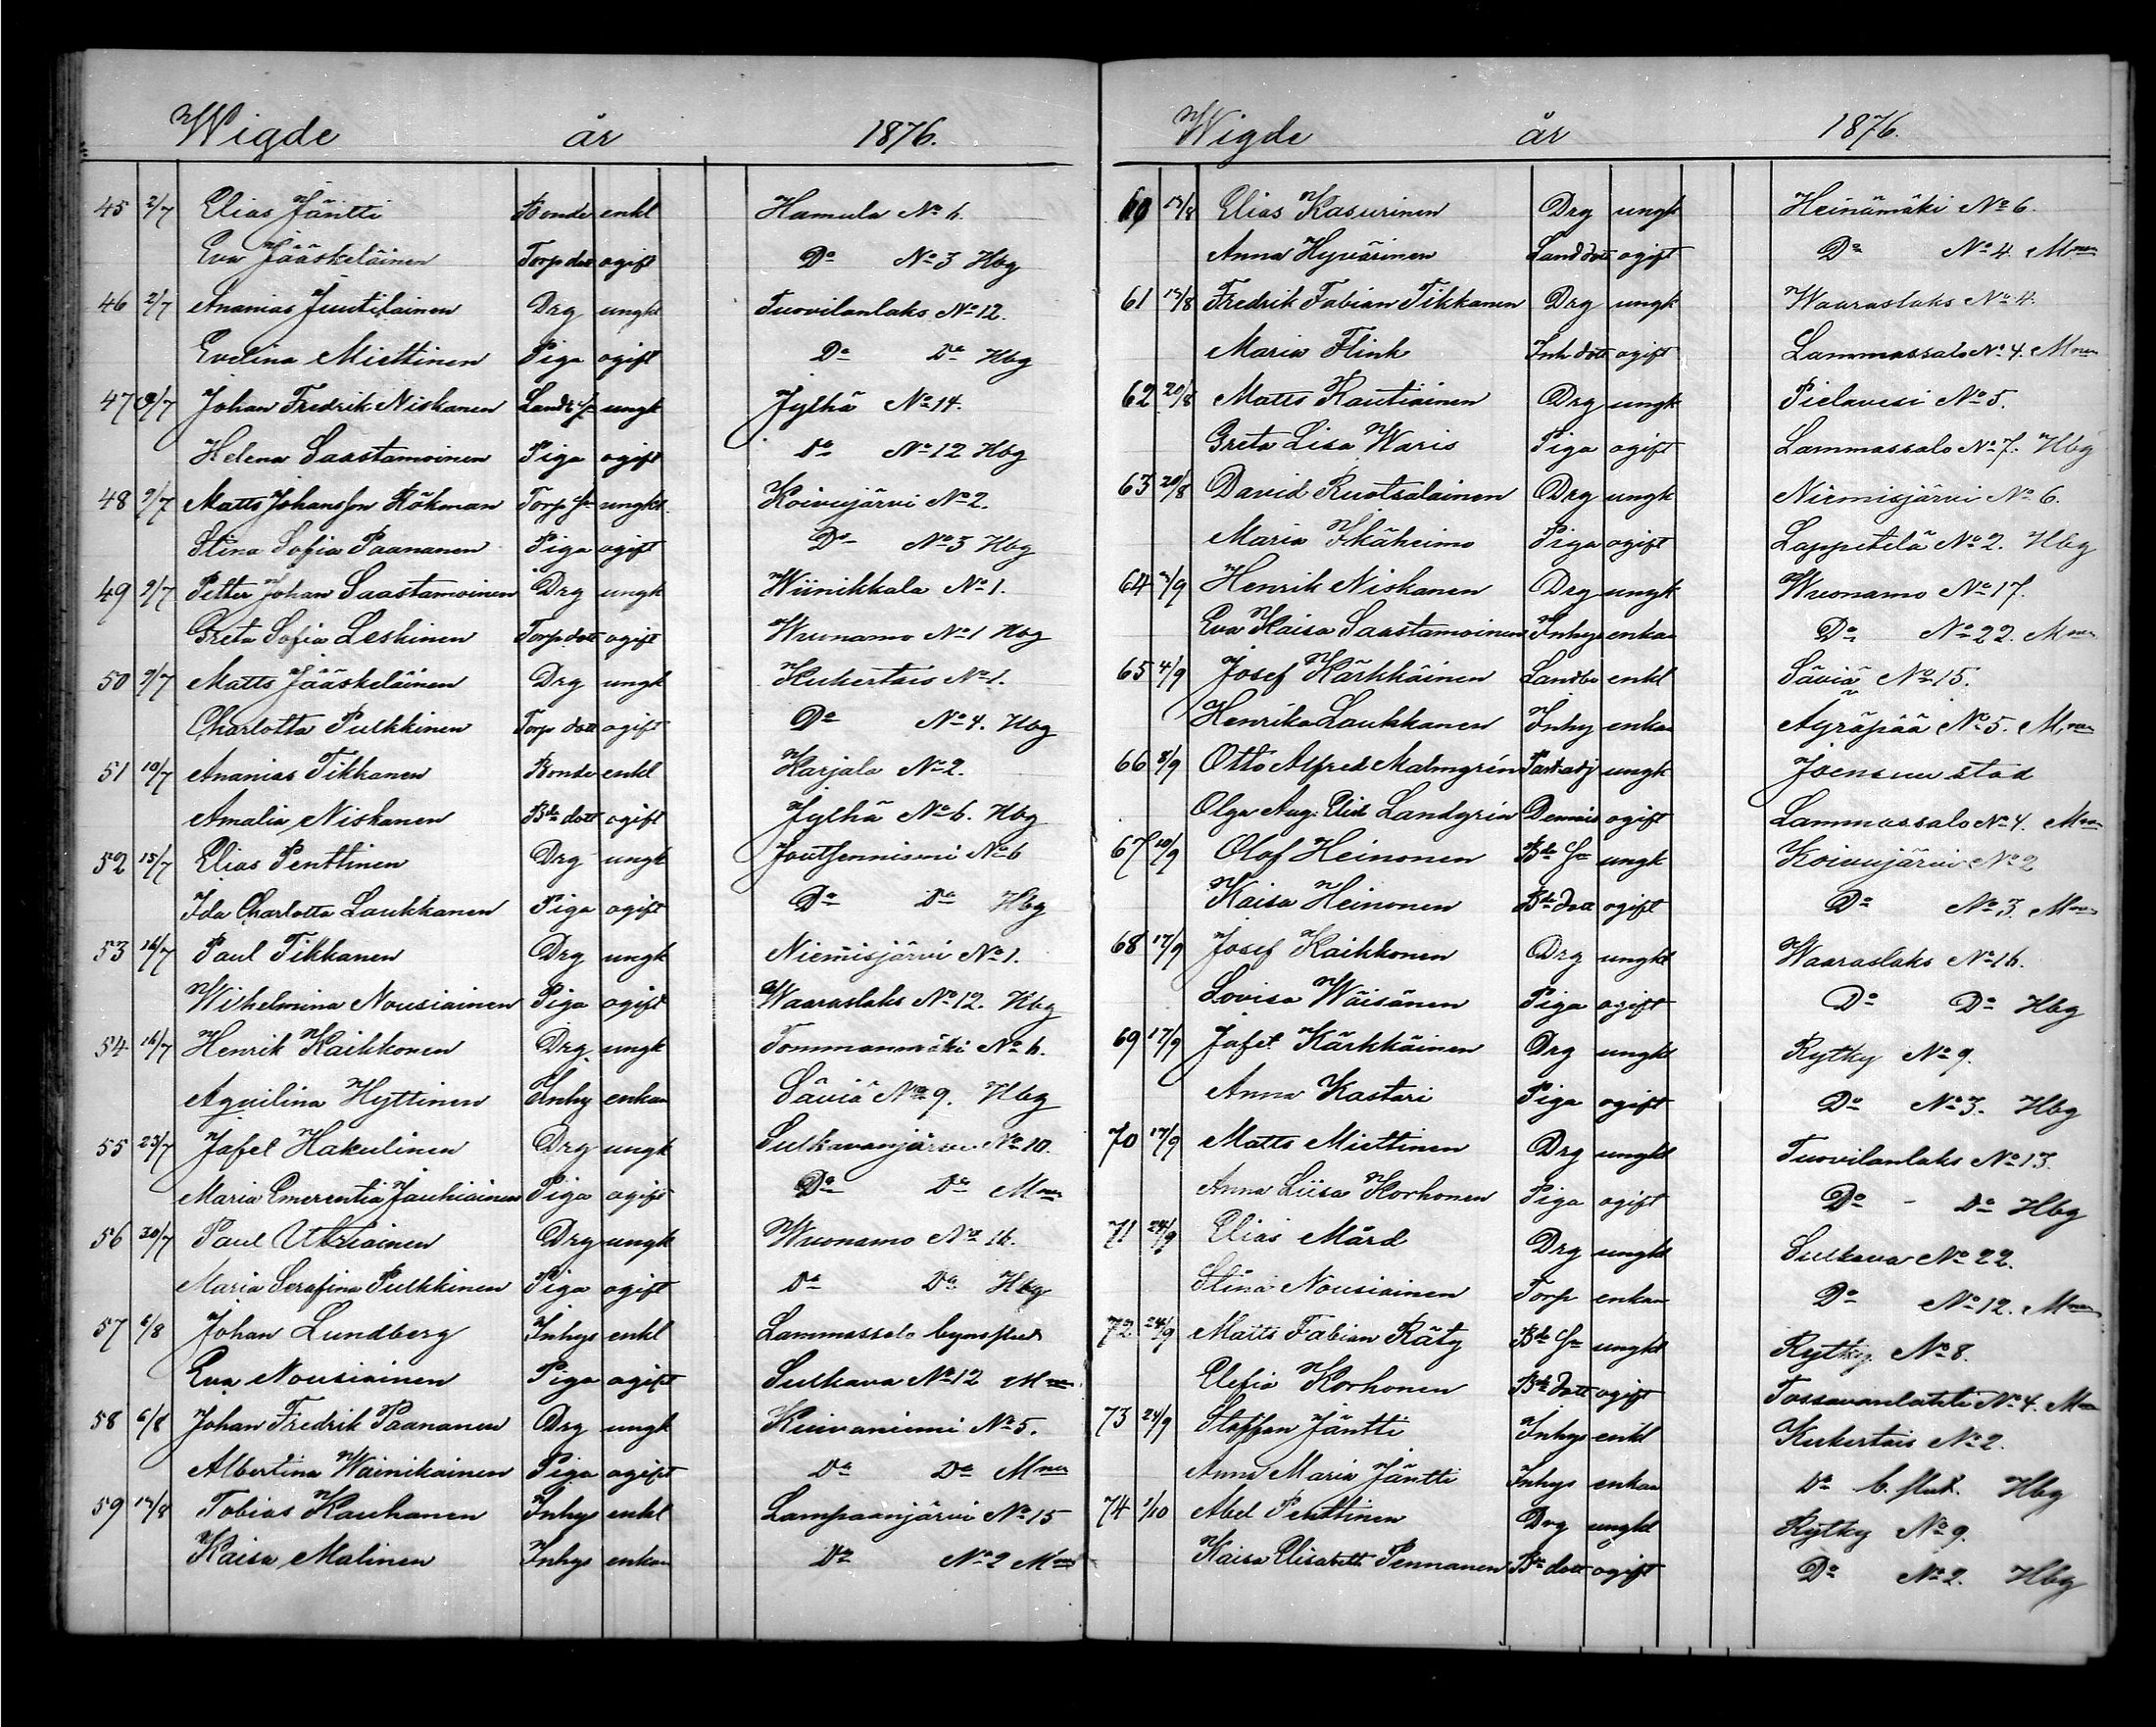 Wigde år 1876.
45 2/7 Elias Jäntti Bonde enkl Hamula No 6.
Eva Jääskeläinen Torp dott ogift Do No 3 Hbg
46 2/7 Ananias Juutilainen Drg ungk Tuovilanlaks No 12.
Evelina Miettinen Piga ogift Do Do Hbg
47 9/7 Johan Fredrik Niskanen Landb Sn ungk Jylhä No 14.
Helena Saastamoinen Piga ogift Do No 12 Hbg
48 9/7 Matts Johansson Hökman Torp Sn ungk Koivujärvi No 2.
Stina Sofia Paananen Piga ogift Do No 3 Hbg
49 9/7 Petter Johan Saastamoinen Drg ungk Wiinikkala No 1.
Greta Sofia Leskinen Torp dott ogift Wuonamo No 1 Hbg
50 9/7 Matts Jääskeläinen Drg ungk Kukertais No 1.
Charlotta Pulkkinen Torp dott ogift Do No 4. Hbg
51 10/7 Ananias Tikkanen Bonde enkl Karjala No 2.
Amalia Niskanen Bde dott ogift Jylhä No 6. Hbg
52 15/7 Elias Penttinen Drg ungk Joutsenniemi No 6
Ida Charlotta Laukkanen Piga ogift Do Do Hbg
53 16/7 Paul Tikkanen Drg ungk Niemisjärvi No 1.
Wilhelmina Nousiainen Piga ogift Waaraslaks No 12. Hbg
54 16/7 Henrik Kaikkonen Drg ungk Tommanmäki No 6.
Aqvilina Hyttinen Inhy enkan Säviä No 9. Hbg
55 23/7 Jafet Hakulinen Drg ungk Sulkavanjärvi No 10.
Maria Emerentia Jauhiainen Piga ogift Do Do Mnen
56 30/7 Paul Utriainen Drg ungk Wuonamo No 16.
Maria Serafina Pulkkinen Piga ogift Do Do Hbg
57 6/8 Johan Lundberg Inhys enkl Lammassalo
Eva Nousiainen Piga ogift Sulkava No 12 Mnen
58 6/8 Johan Fredrik Paananen Drg ungk Kuivaniemi No 5.
Albertina Wainikainen Piga ogift Do Do Mnen
59 13/8 Tobias Kauhanen Inhys enkl Lampaanjärvi No 15
Kaisa Malinen Inhys enkan Do No 2 Mnen
Wigde år 1876.
60 13/8 Elias Kasurinen Drg ungk Heinämäki No 6.
Anna Hyvärinen Land dott ogift Do No 4. Mnen
61 13/8 Fredrik Fabian Tikkanen Drg ungk Waaraslaks No 4.
Maria Flink Inh dott ogift Lammassalo No 4. Mnen
62 20/8 Matts Kautiainen Drg ungk Pielavesi No 5.
Greta Lisa Waris Piga ogift Lammassalo No 7. Hbg
63 20/8 David Ruotsalainen Drg ungk Niemisjärvi No 6.
Maria Ikäheimo Piga ogift Lappetelä No 2. Hbg
64 3/9 Henrik Niskanen Drg ungk Wuonamo No 17.
Eva Kaisa Saastamoinen Inhys enkan Do No 22. Mnen
65 4/9 Josef Kärkkäinen Landbo enkl Säviä No 15.
Henrika Laukkanen Inhy enkan Äyräpää No 5. Mnen
66 8/9 Otto Alfred Malmgrén Past adj ungk Joensuu stad
Olga Aug. Elis Landgrén Demois ogift Lammassalo No 4. Mnen
67 10/9 Olof Heinonen Bde Sn ungk Koivujärvi No 2
Kaisa Heinonen Bde dott ogift Do No 3. Mnen
68 17/9 Josef Kaikkonen Drg ungk Waaraslaks No 16.
Lovisa Wäisänen Piga ogift Do Do Hbg
69 17/9 Jafet Kärkkäinen Drg ungk Rytky No 9.
Anna Kastari Piga ogift Do No 3. Hbg
70 17/9 Matts Miettinen Drg ungk Tuovilanlaks No 13.
Anna Liisa Korhonen Piga ogift Do - Do Hbg
71 24/9 Elias Mård Drg ungk Sulkava No 22.
Stina Nousiainen Torp enkan Do No 12. Mnen
72 24/9 Matts Fabian Räty Bde Sn ungk Rytky No 8.
Elefia Korhonen Bde dott ogift Tossavanlahti No 4. Mnen
73 24/9 Staffan Jäntti Inhys enkl Kukertais No 2.
Anna Maria Jäntti Inhys enkan Do Hbg
74 1/10 Abel Penttinen Drg ungk Rytky No 9.
Kaisa Elisabeth Pennanen Bde dott ogift Do No 2. Hbg